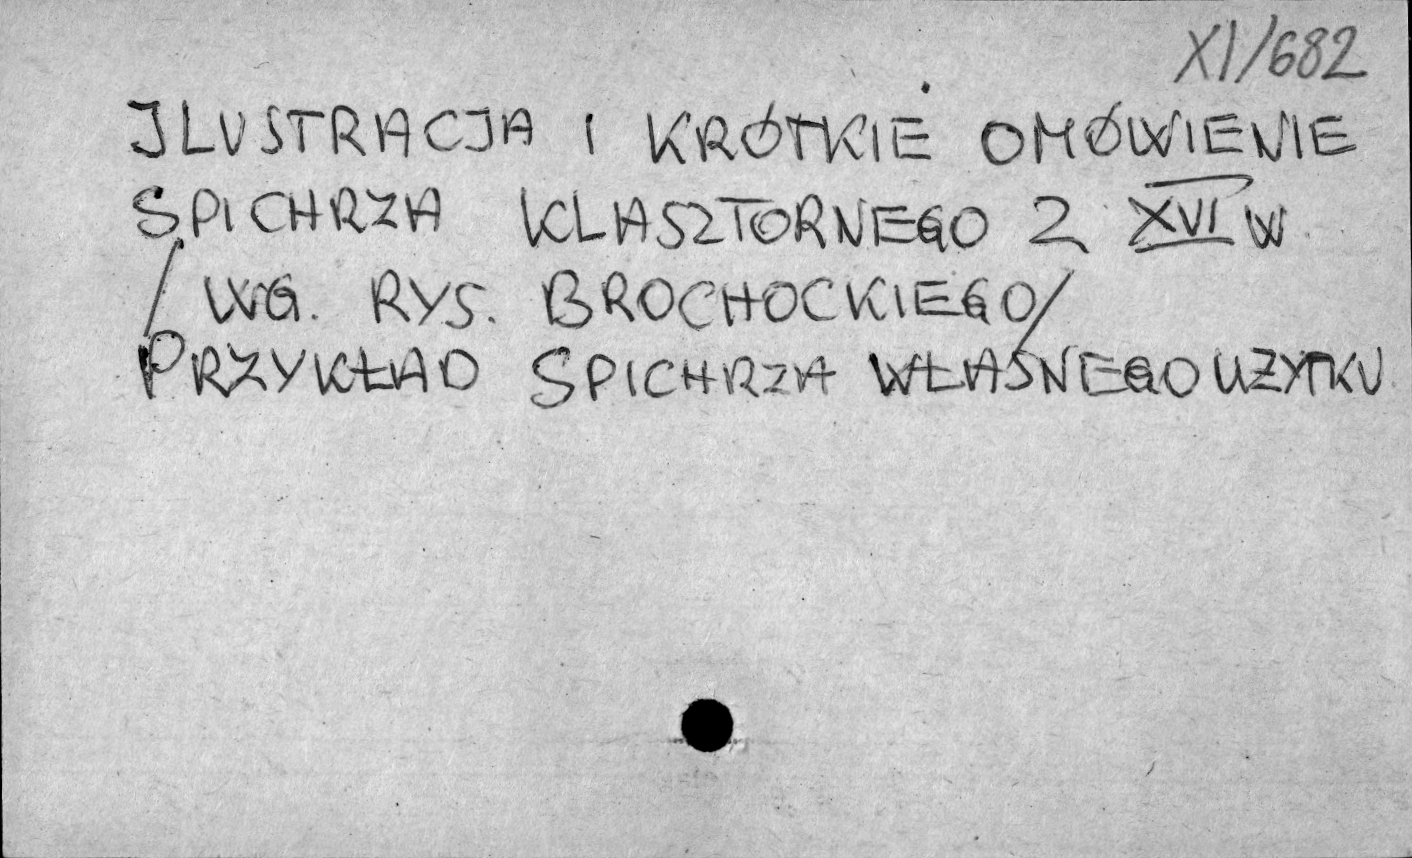 XI/682
JLUSTRACJA I KRÓTKIE OMÓWIENIE
SPICHRZA KLASZTORNEGO Z XVI W
/ WG. RYS. BROCHOCKIEGO/
PRZYKŁAD SPICHRZA WŁASNEGO UŻYTKU